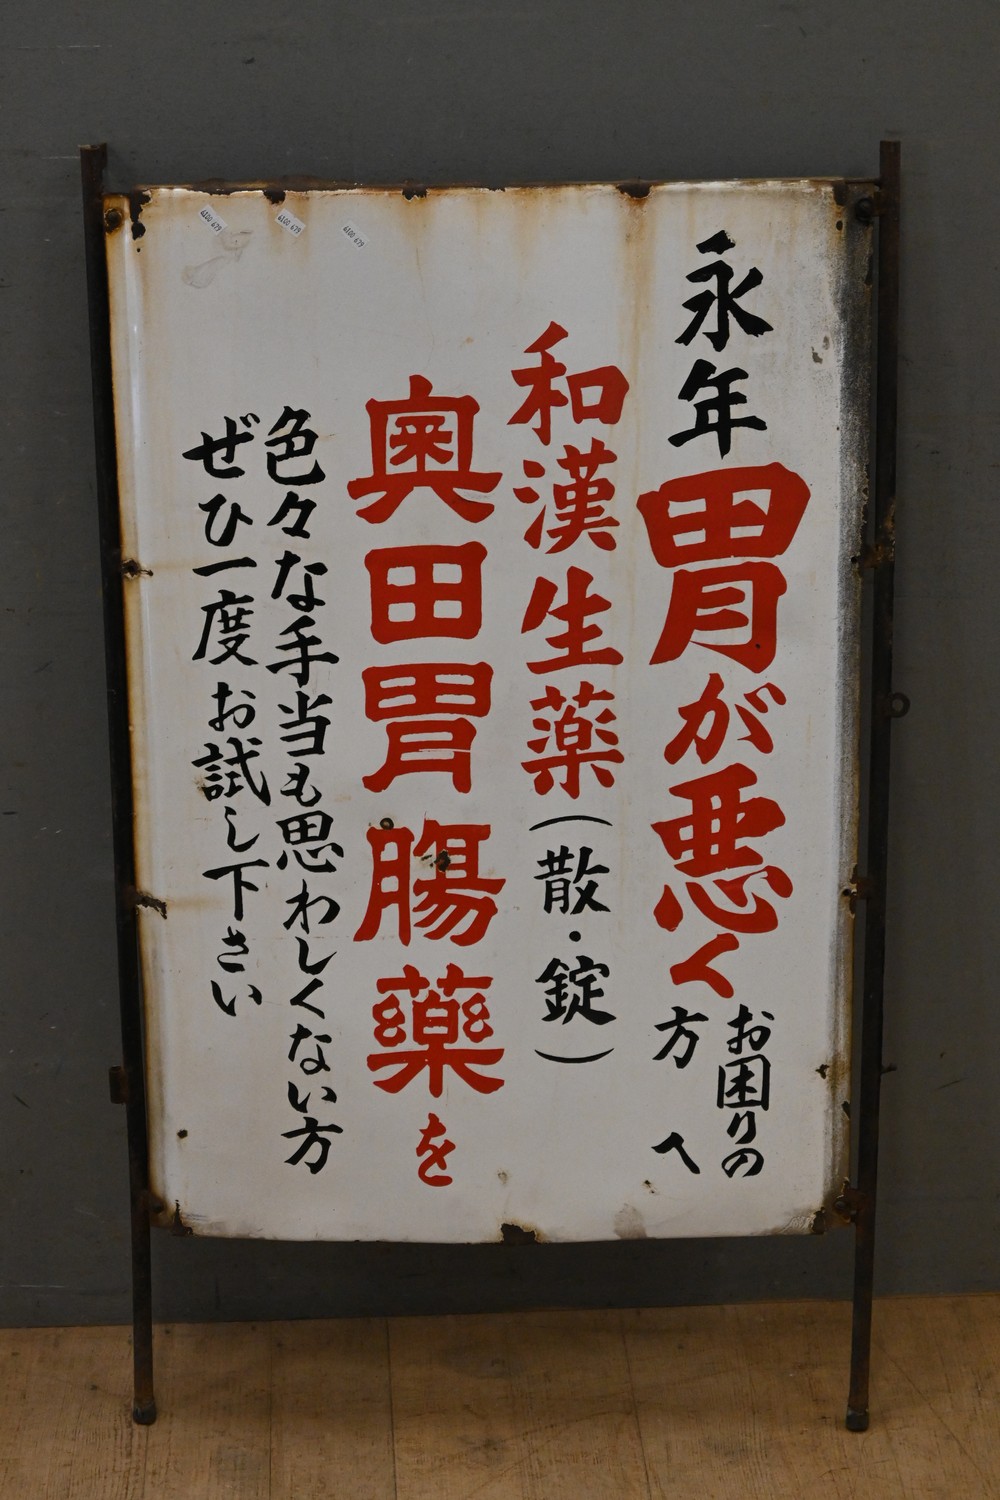 永年胃が悪くお困りの方へ
和漢生薬(散・錠)
奥田胃腸藥を
色々な手当も思わしくない方
ぜひ一度お試し下さい
4100 679
4100 679
4100 679